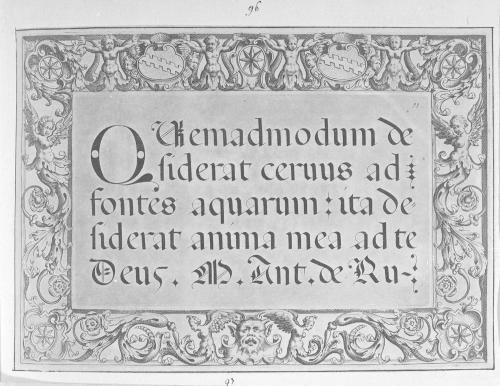 96
QUemadmodum de
siderat ceruus ad
fontes aquarum : ita de
siderat anima mea ad te
Deus. M. Ant. de Ru-
97